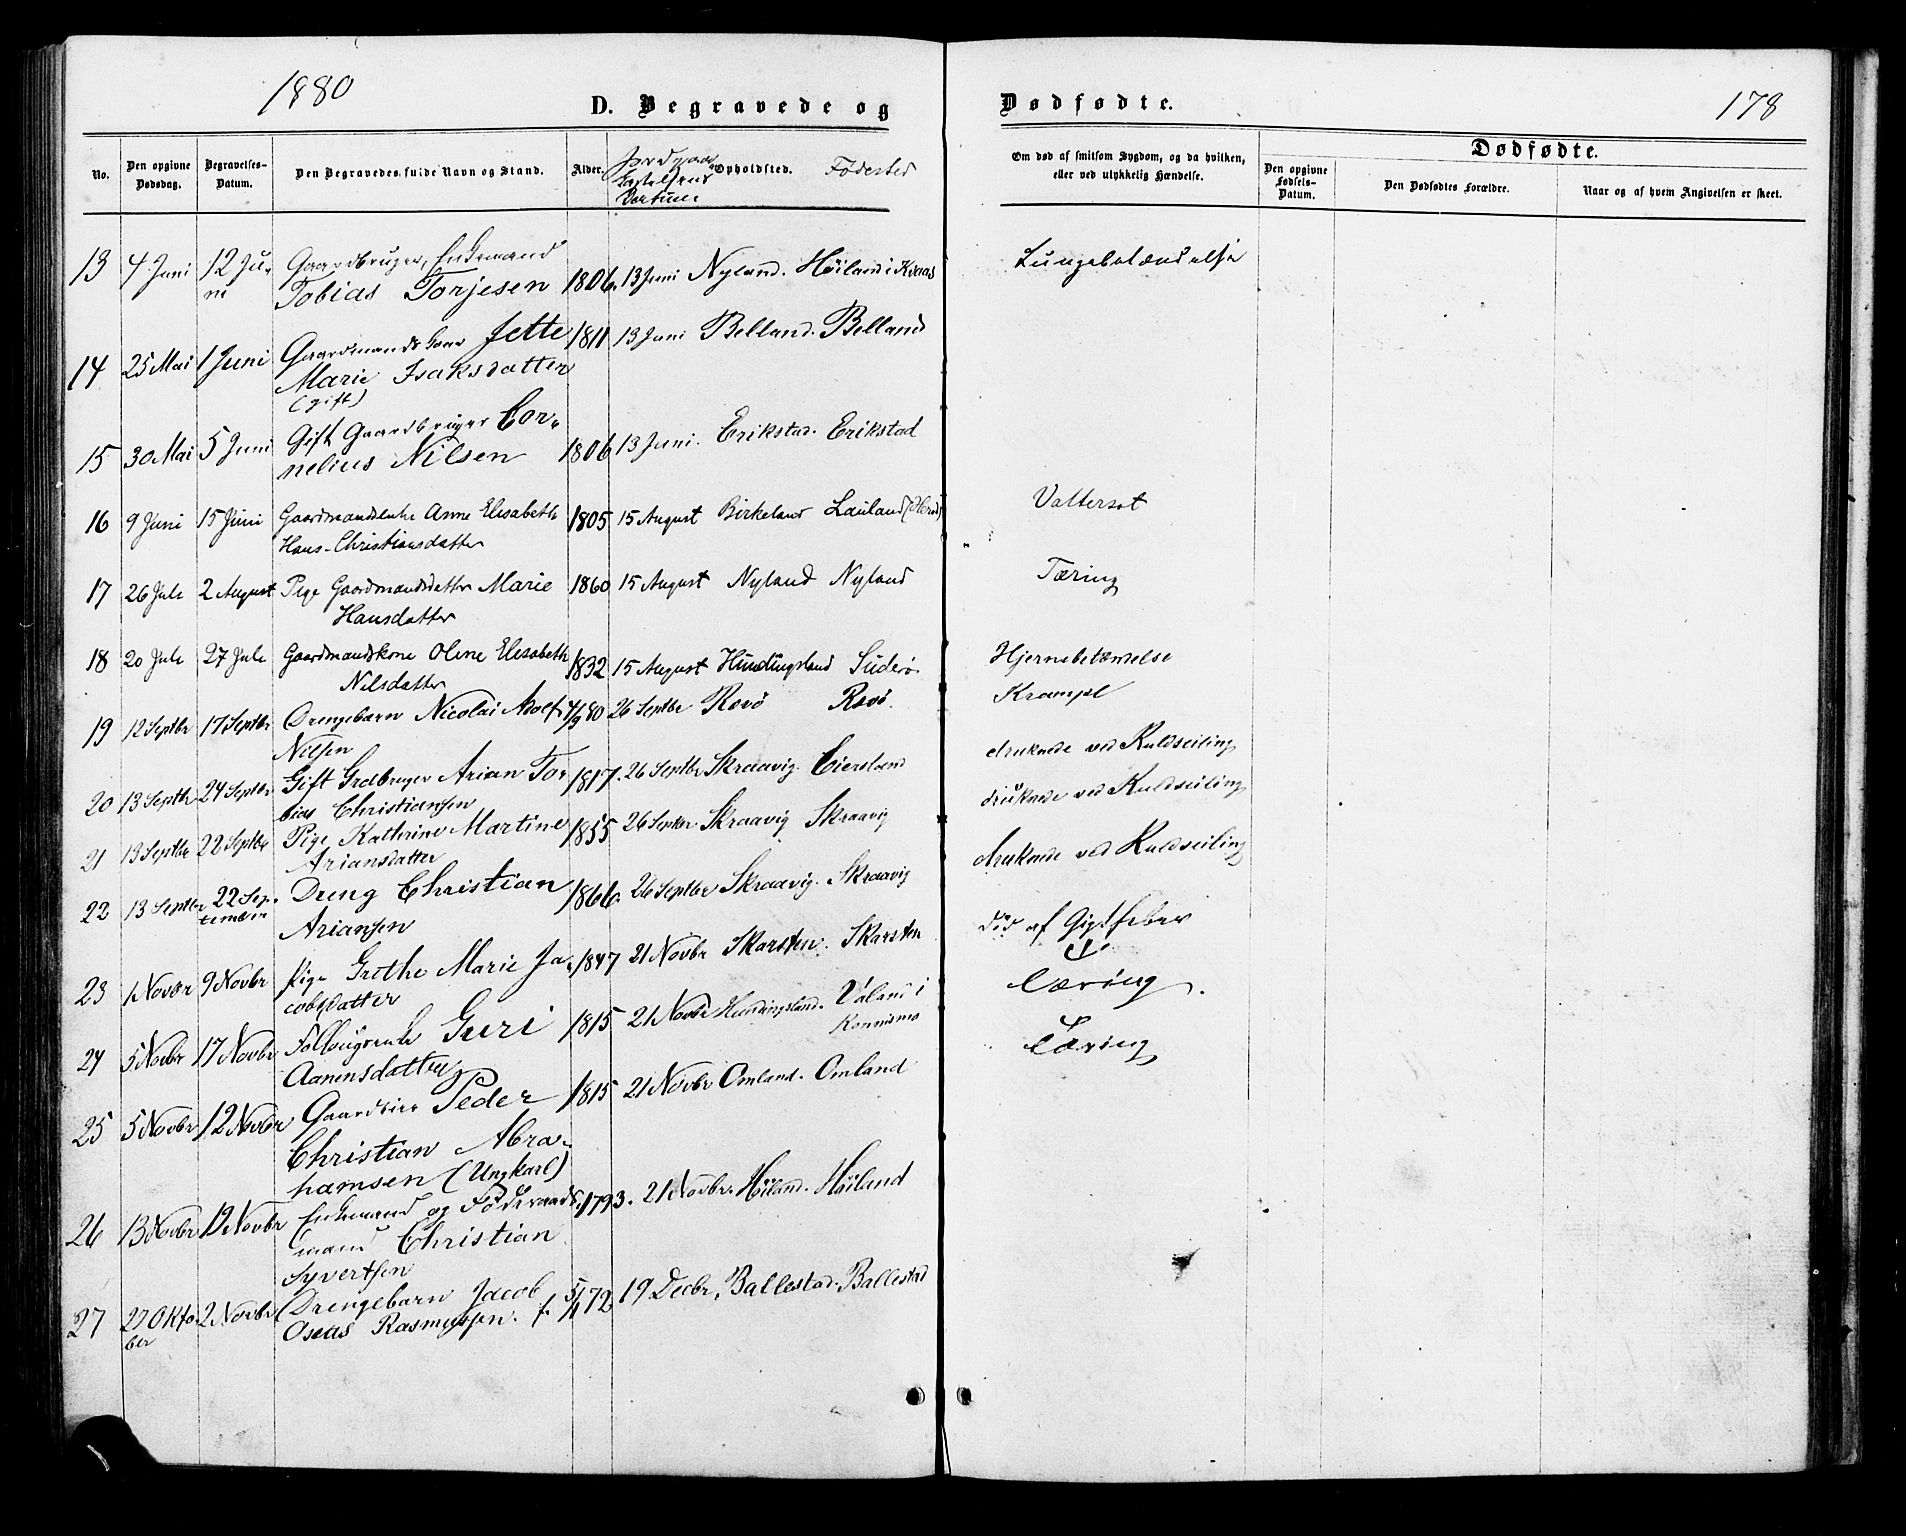 1880
D. Begravede og Dødfødte.
178
No. Den opgivne Dødsdag. Begravelses-Datum. Den Begravedes fulde Navn og Stand. Alder. Jordpaakastelsens Datum. Opholdsted. Fødested
Om død af smitsom Sygdom, og da hvilken, eller ved ulykkelig Hændelse.
Dødfødte.
Den opgivne Fødsels-Datum. Den Dødfødtes Forældre. Naar og af hvem Angivelsen er skeet.
13 4 Juni 12 Ju- Gaardbruger, Enkemand
ni Tobias Torjesen 1806. 13 Juni Nyland. Høiland i Kvaas Lungebetændelse
14 25 Mai 1 Juni Gaardmandskone Jette 1811 13 Juni Belland. Belland
Marie Isaksdatter
(gift)
15 30 Mai 5 Juni Gift Gaardbruger Cor-
nelius Nilsen 1806 13 Juni. Erikstad. Erikstad
16 9 Juni 15 Juni Gaardmandsenke Anne Elisabeth 1805 15 August Birkeland Lauland (Herad) Vattersot
Hans-Christiansdatter
17 26 Juli 2 August Pige Gaardmandsdatter Marie 1860 15 August Nyland Nyland Tæring
Hansdatter
18 20 Juli 27 Juli Gaardmandskone Olene Elisabeth 1832 15 August Hundingsland Suderø Hjernebetændelse
Nilsdatter
19 12 Septbr 17 Septbr Drengebarn Nicolai Adolf 4/9 80 26 Septbr Rovø Rovø. Krampe
Nilsen
20 13 Septbr 24 Septbr Gift Grdbruger Arian To- 1817. 26 Septbr Skraavig. Eiersland druknede ved Kuldseiling
bias Christiansen
21 13 Septbr 22 Septbr Pige Kathrine Martine 1855 26 Septbr Skraavig Skraavig druknede ved Kuldseiling
Ariansdatter
22 13 Septbr 22 Sep- Dreng Christian 1866. 26 Septbr Skraavig. Skraavig druknede ved Kuldseiling
tember Ariansen
23 1 Novbr 9 Novbr Pige Grethe Marie Ja- 1847 21 Novbr Skarsten. Skarsten død af Gigtfeber
cobsdatter
24 5 Novbr 17 Novbr Guri 1815 21 Novbr Hundingsland. Valand i Konnismo Tæring.
Aanensdatter
25 5 Novbr 12 Novbr Peder 1815 21 Novbr Omland. Omland Tæring
Christian Abra-
hamsen (Ungkarl)
26 13 Novbr 19 Novbr Enkemand og Føderaads- 1793. 21 Novbr. Høiland. Høiland
mand Christian
Syvertsen
27 27 Okto- 2 Novbr Drengebarn Jacob 5/1 72 19 Decbr. Ballestad. Ballestad
ber Oseas Rasmussen. f.